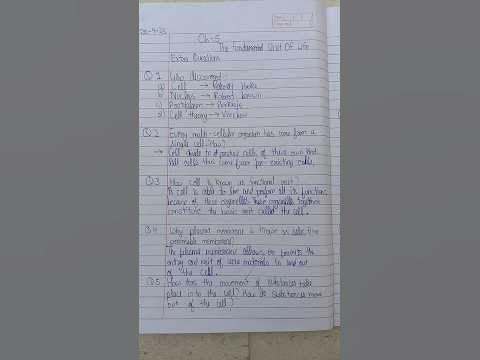 Ch-5
The Fundamental Unit Of Life
Extra Questions
Q 1 Who discovered:-
a) Cell → Robert Hooke
b) Nucleus → Robert
c) Protoplasm →
d) Cell theory → Virchow
Q 2 Every multi-cellular organism has come from a
single cell. How?
→ Cell divide to produce cells of their own kind
All cells thus come from pre-existing cells.
Q 3 How cell is known as functional unit?
A cell is able to live and perform all its functions
because of these organelles. These organelles together
constitute the basic unit called the cell.
Q 4 Why plasma membrane is known as selective
permeable membrane?
The plasma membrane allows or permits the
entry and exit of some materials in and out
of the cell.
Q 5 How does the movement of substances take
place into the cell? How do substances move
out of the cell?